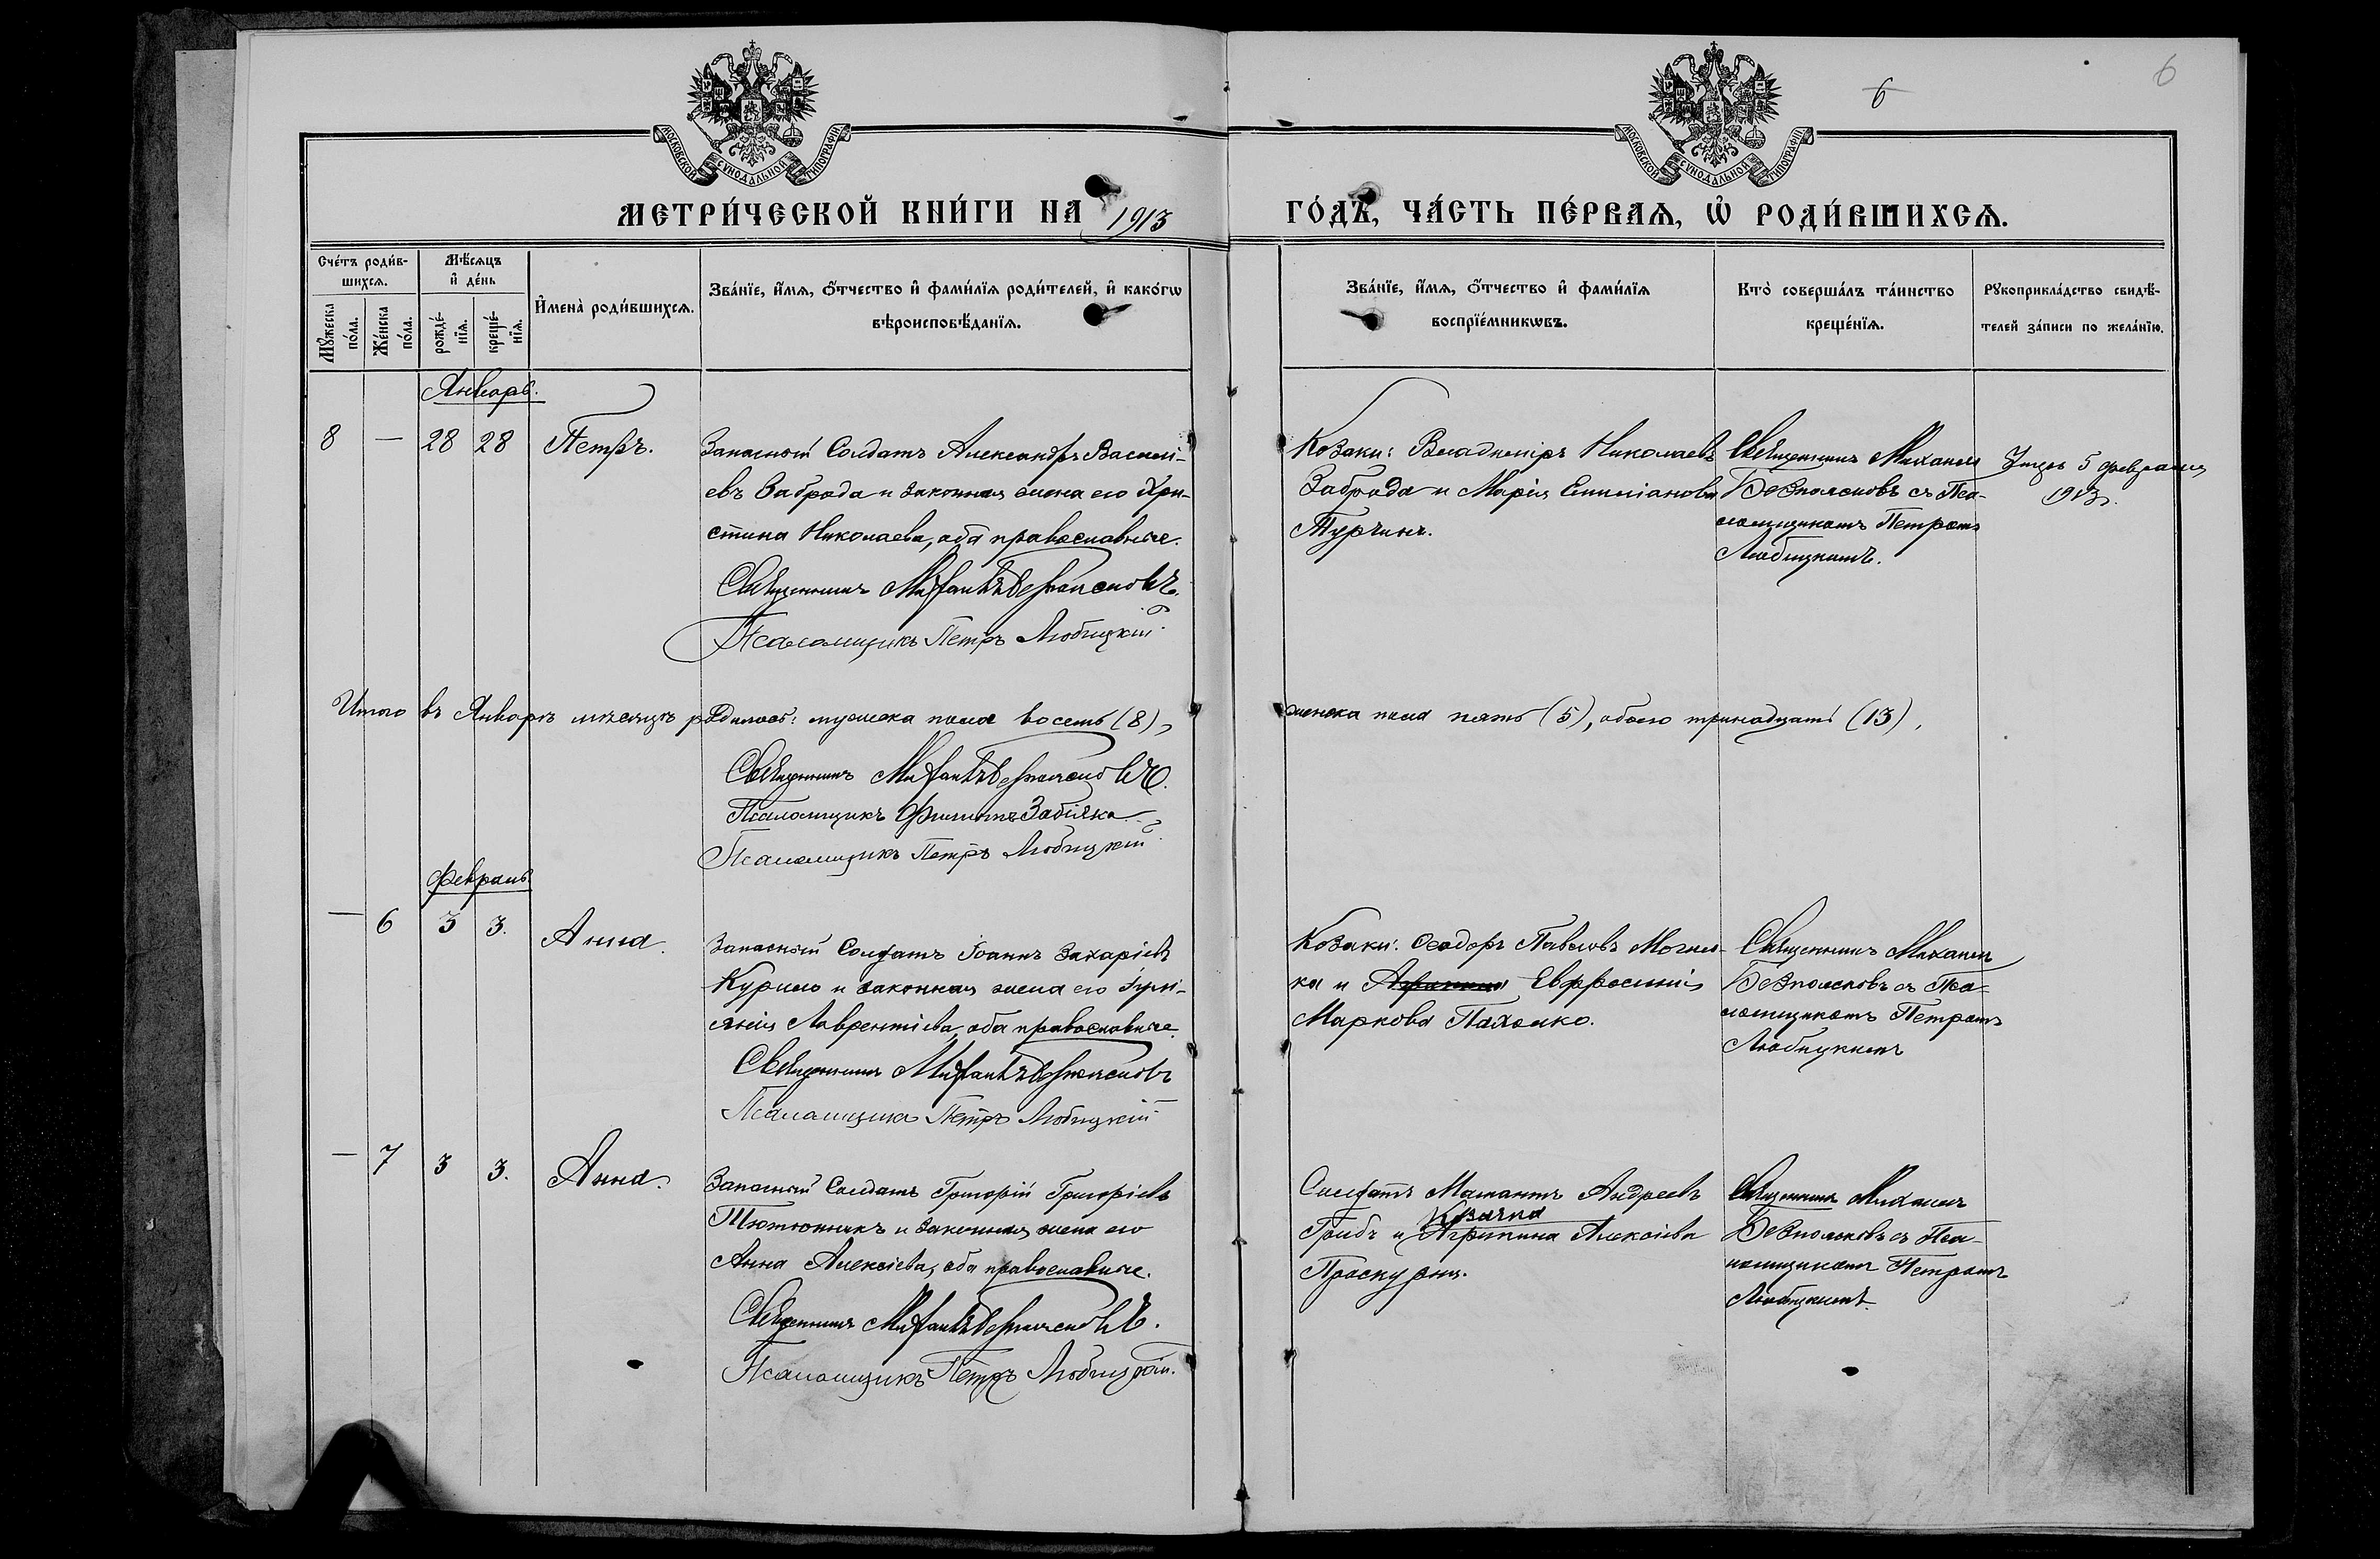 6
6
МОСКОВСКОЙ СѴНОДАЛЬНОЙ ТИПОГРАФІИ
МОСКОВСКОЙ СѴНОДАЛЬНОЙ ТИПОГРАФІИ
МЕТРИ́ЧЕСКОЙ КНИ́ГИ НА 1913
ГО́ДЪ, ЧА́СТЬ ПЕ́РВАѦ, Ѡ҆ РОДИ́ВШИХСѦ.
Сче́тъ роди́в-
шихсѧ.
Мꙋ́жеска
по́ла.
Же́нска
по́ла.
Мѣ́сѧцъ
и҆ де́нь
рожде́-
нїѧ.
креще́-
нїѧ.
И҆мена̀ роди́вшихсѧ.
Зва́нїе, и҆́мѧ, ѻ҆́тчество и҆ фами́лїѧ роди́телей, и҆ како́гѡ
вѣроисповѣ́данїѧ.
Зва́нїе, и҆́мѧ, ѻ҆́тчество и҆ фами́лїѧ
воспрїе́мникѡвъ.
Кто̀ соверша́лъ та́инство
креще́нїѧ.
Рꙋкоприкла́дство свидѣ́-
телей за́писи по жела́нїю.
Январь.
8 — 28 28 Петръ.
Запасный Солдатъ Александръ Василі-
евъ Заброда и законная жена его Хри-
стина Николаева, оба православные.
Священникъ Михаилъ Безпалсковъ
Псаломщикъ Петръ Любицкій
Козаки: Владиміръ Николаевъ
Заброда и Марія Емиліанова
Турчинъ.
Священникъ Михаилъ
съ Пса-
ломщикомъ Петромъ
Любицкимъ.
5 февраля
1913.
Итого въ Январѣ мѣсяцѣ родилось: мужеска пола восемь (8),
женска пола пять (5), обоего тринадцать (13).
Священникъ Михаилъ
Псаломщикъ Филиппъ Забіяка
Псаломщикъ Петръ Любицкій
Февраль
— 6 3 3. Анна.
Запасный Солдатъ Іоаннъ Захаріевъ
Курило и законная жена его Іулі-
анія Лаврентіева, оба православные.
Священникъ Михаилъ
Псаломщикъ Петръ Любицкій
Козаки: Ѳеодоръ Павловъ Могил-
ка и Евфросинія
Маркова Пахомко.
Священникъ Михаилъ
съ Пса-
ломщикомъ Петромъ
Любицкимъ
— 7 3 3. Анна.
Запасный Солдатъ Григорій Григоріевъ
Тютюнникъ и законная жена его
Анна Алексіева, оба православные.
Священникъ Михаилъ
Псаломщикъ Петръ Любицкій.
Солдатъ Андреевъ
козачка
Грибъ и Агрипина Алексіева
Проскурня.
Священникъ Михаилъ
съ Пса-
ломщикомъ Петромъ
Любицкимъ.